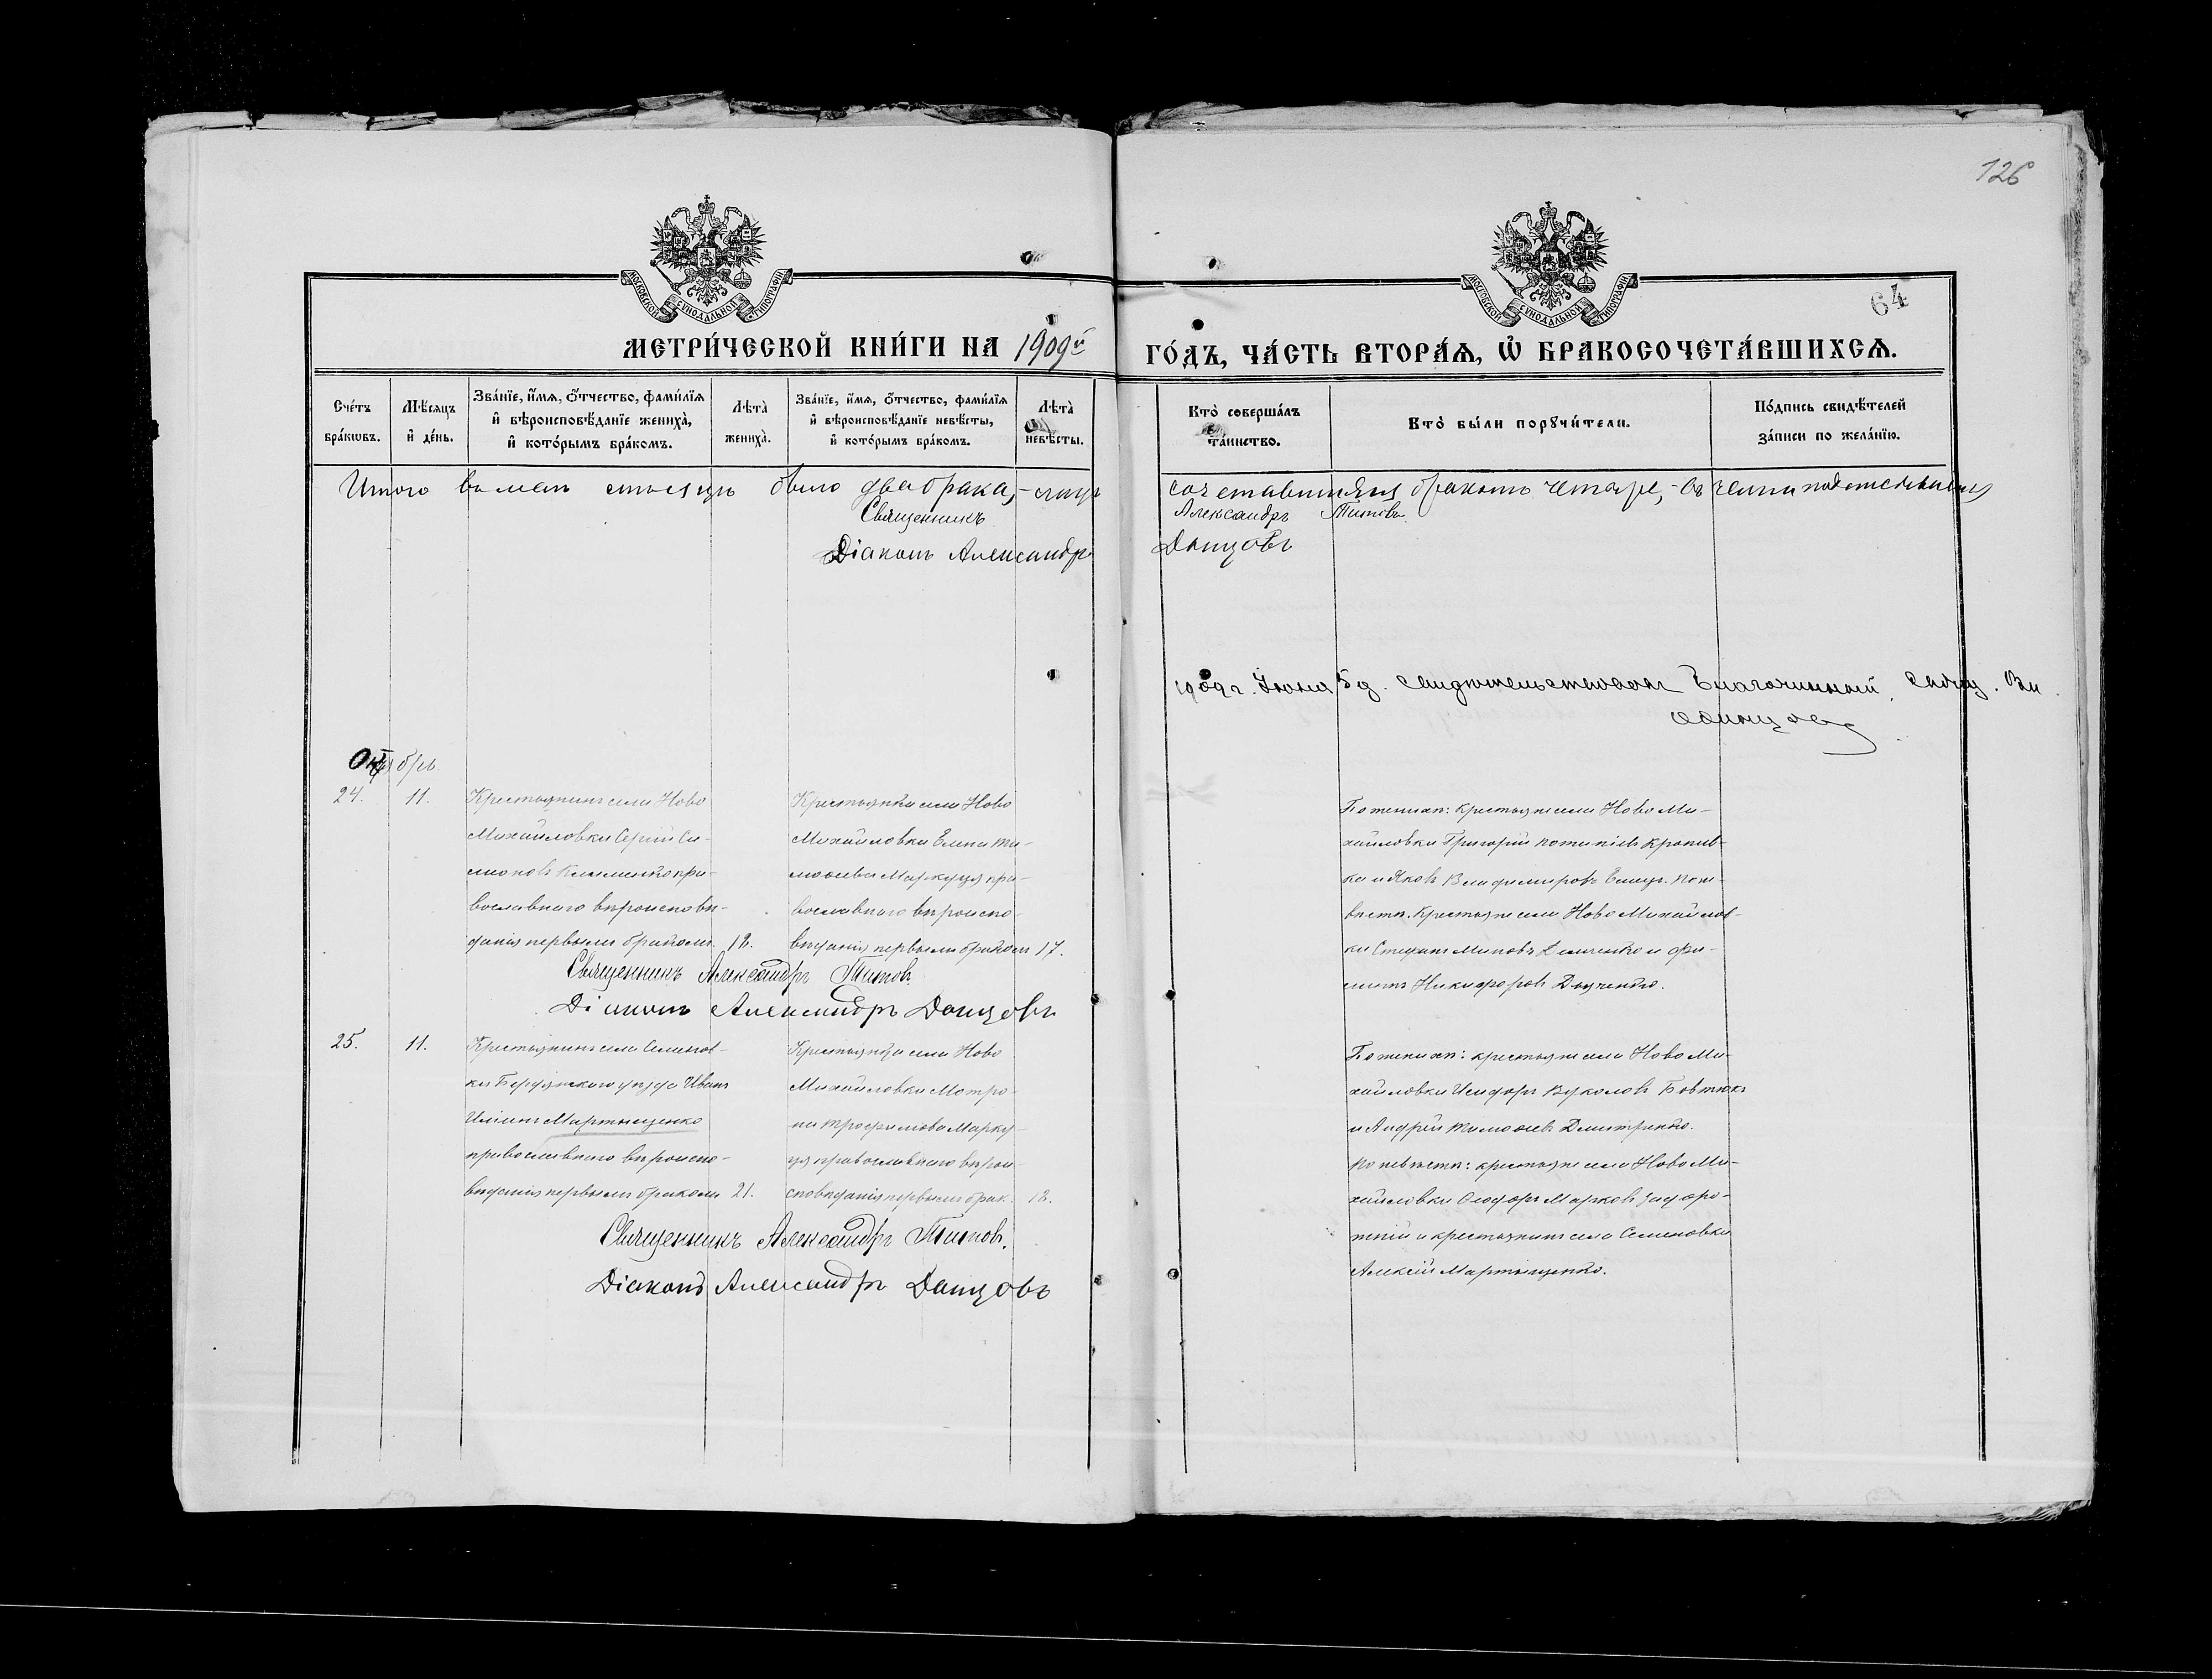 126
МОСКОВСКОЙ СѴНОДАЛЬНОЙ ТИПОГРАФІИ
МОСКОВСКОЙ СѴНОДАЛЬНОЙ ТИПОГРАФІИ
64
МЕТРИ́ЧЕСКОЙ КНИ́ГИ НА 1909й
ГО́ДЪ, ЧА́СТЬ ВТОРА́Ѧ, Ѡ҆ БРАКОСОЧЕТА́ВШИХСѦ.
Сче́тъ бра́кѡвъ.
Мѣ́сѧцъ и҆ де́нь.
Зва́нїе, и҆́мѧ, ѻ҆́тчество, фами́лїѧ и҆ вѣроисповѣ́данїе жениха̀, и҆ кото́рымъ бра́комъ.
Лѣта̀ жениха̀.
Зва́нїе, и҆́мѧ, ѻ҆́тчество, фами́лїѧ и҆ вѣроисповѣ́данїе невѣ́сты, и҆ кото́рымъ бра́комъ.
Лѣта̀ невѣ́сты.
Кто̀ соверша́лъ та́инство.
Кто̀ бы́ли порꙋчи́тели.
По́дпись свидѣ́телей за́писи по жела́нїю.
Итого въ мѣсяцѣ было два брака,
сочетавшихся бракомъ четыре, въ чемъ и подписываемся
Священникъ Александръ Титовъ
Діаконъ Александръ Донцовъ
1909 г. Іюня 5 д. свидѣтельствовалъ Благочинный, Свящ.
Октябрь
24.
11.
Крестьянинъ села Ново
Михайловки Сергій Си-
моновъ Клименко пра-
вославнаго вѣроисповѣ-
данія первымъ бракомъ
18.
Крестьянка села Ново
Михайловки Елена Ти-
моѳеева Маркуця пра-
вославнаго вѣроиспо-
вѣданія первымъ бракомъ
17.
По женихѣ: крестьяне села Ново Ми-
хайловки Григорій
и Яковъ Владимировъ
невѣстѣ. Крестьяне села Ново Михайлов-
ки Стефанъ
Никифоровъ
Священникъ Александръ Титовъ.
Діаконъ Александръ Донцовъ
25.
11.
Крестьянинъ села Семенов-
ки Бердянскаго уѣзда Иванъ
Иліинъ Мартыщенко
православнаго вѣроиспо-
вѣданія первымъ бракомъ
21.
Крестьянка села Ново
Михайловки Матро-
на Трофимова Марку-
ця православнаго вѣрои-
сповѣданія первымъ брак.
18.
По женихѣ: крестьяне села Ново Ми-
хайловки Исидоръ Вуколовъ Бовтюкъ
и Андрей Тимоѳеевъ Дмитренко.
По невѣстѣ: крестьяне села Ново Ми-
хайловки Ѳеодоръ Марковъ Задоро-
жній и крестьянинъ села Семеновки
Алексій Мартыщенко.
Священникъ Александръ Титовъ.
Діаконъ Александръ Донцовъ